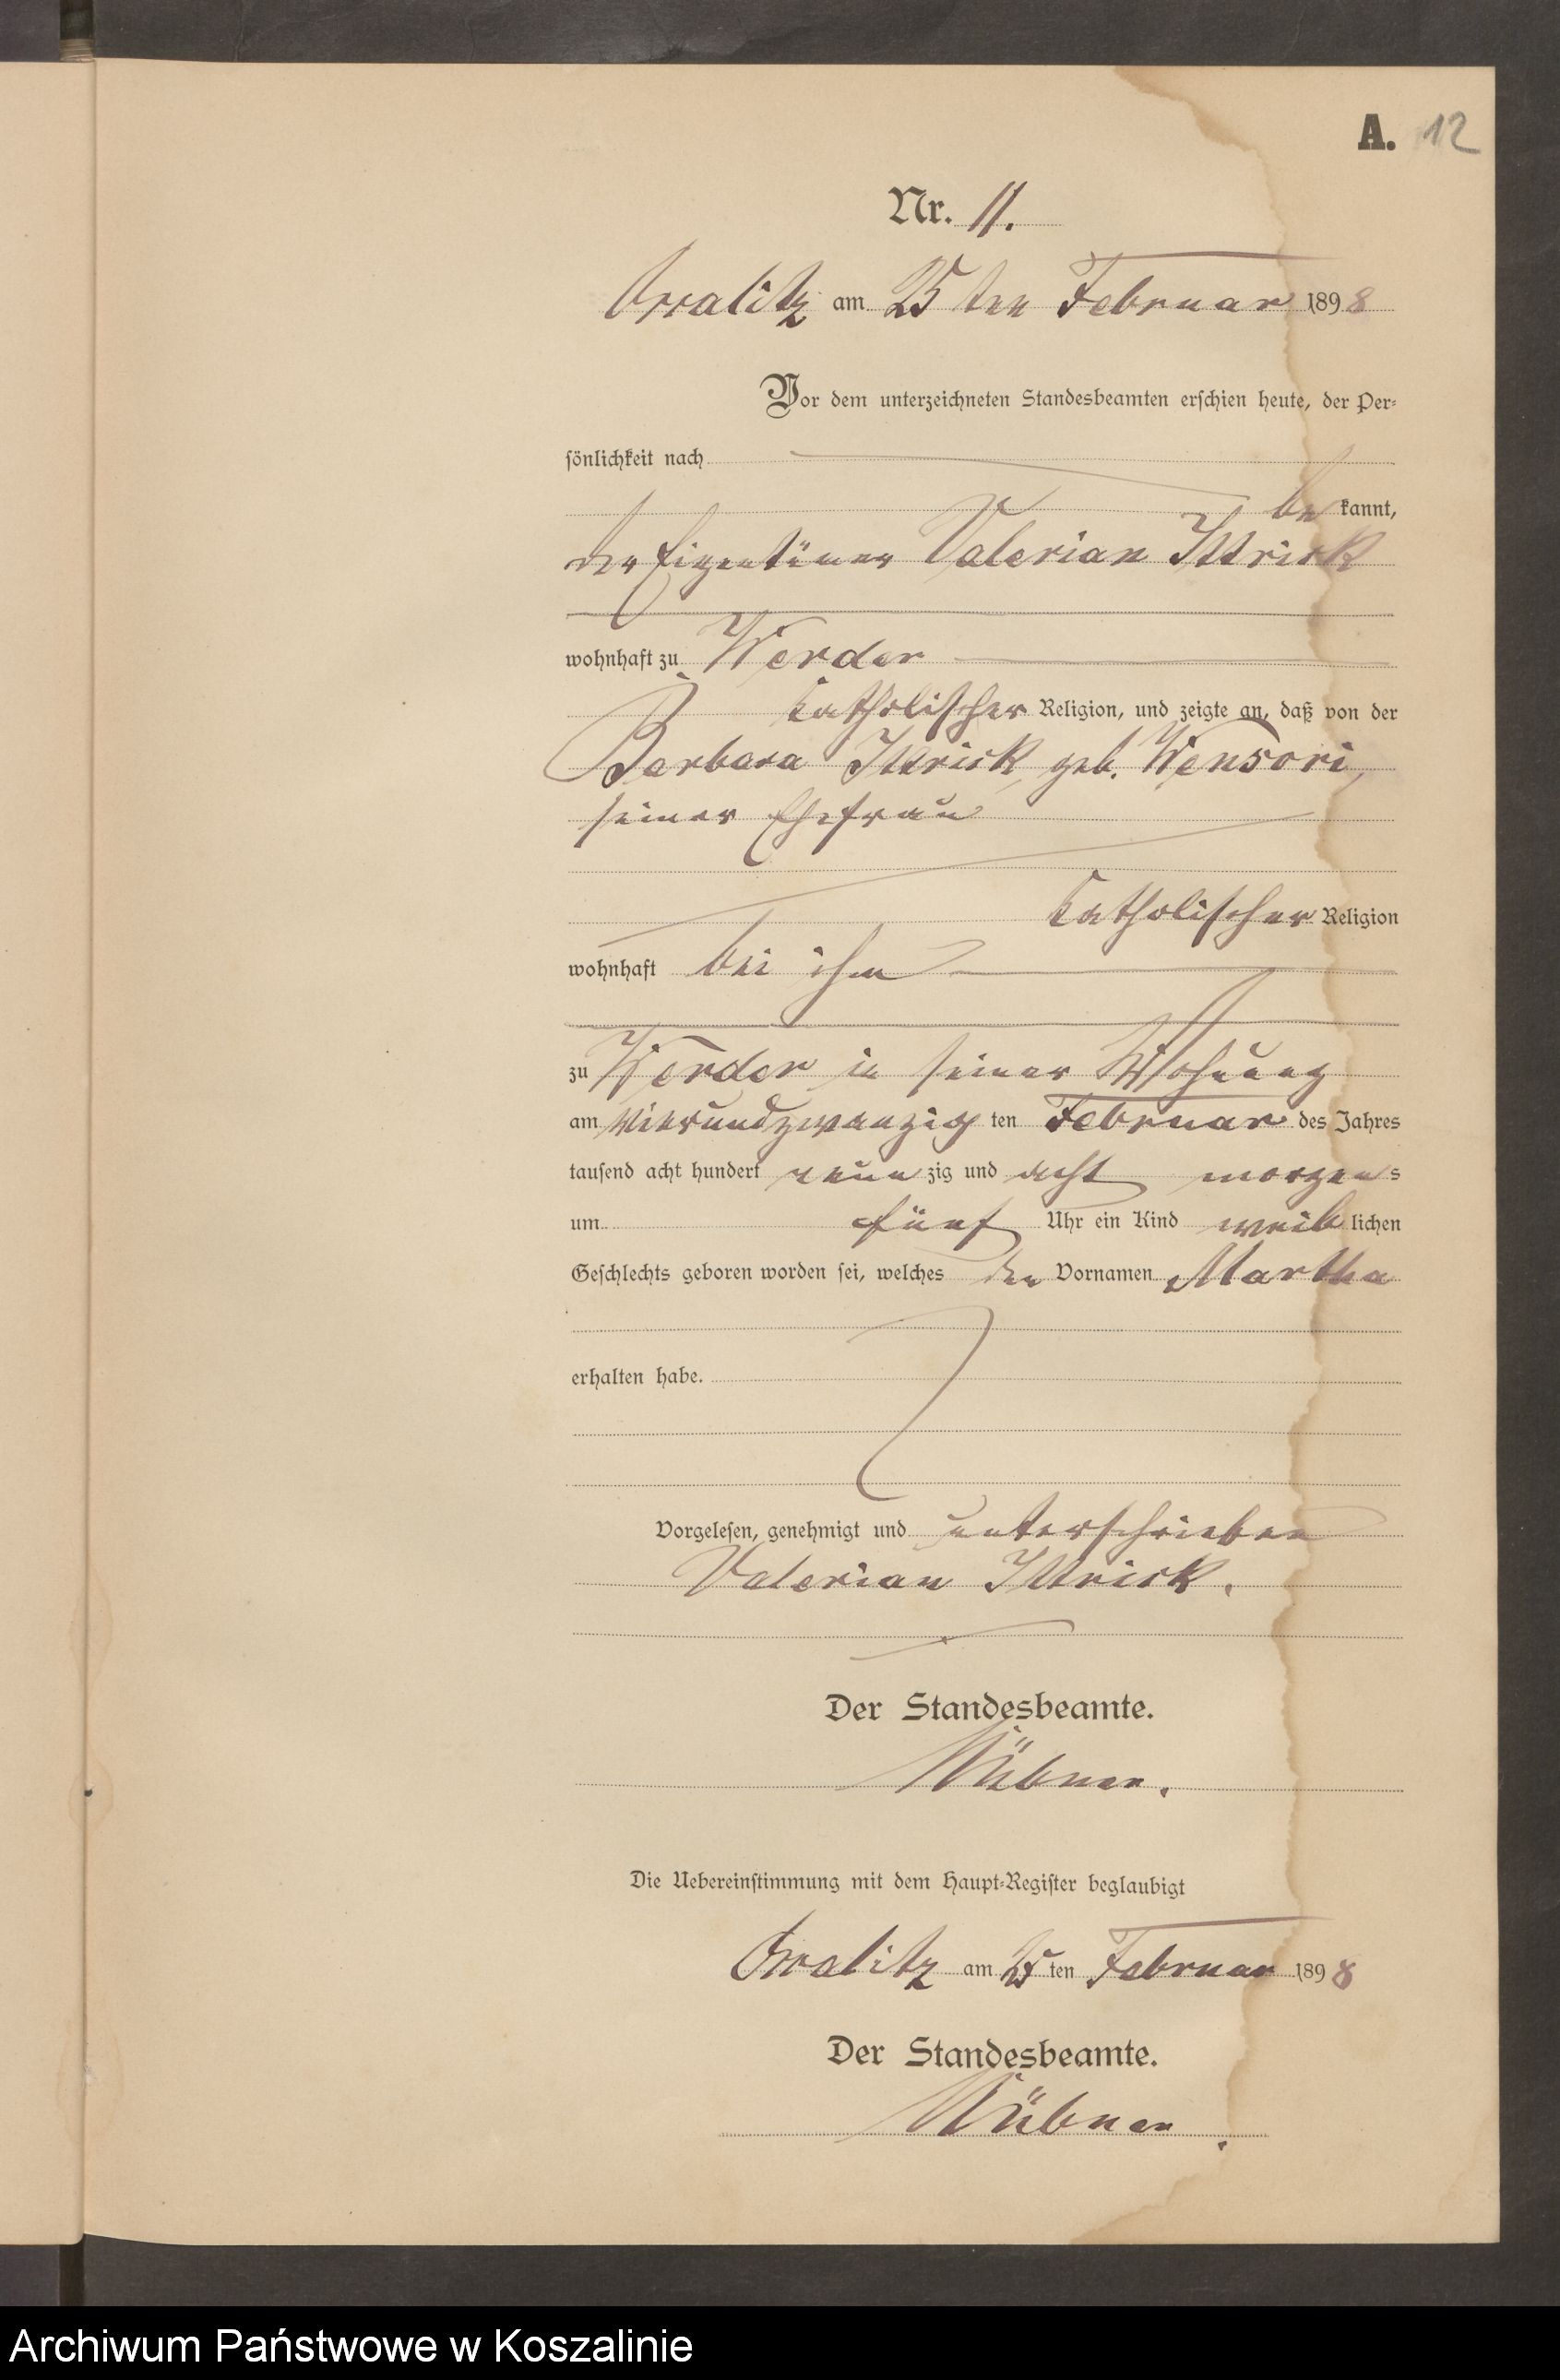 A. 12
Nr. 11.
am 25 ten Februar 1898
Vor dem unterzeichneten Standesbeamten erschien heute, der Per-
sönlichkeit nach
be kannt,
der Eigentümer Valerian
wohnhaft zu Werder
katholischer Religion, und zeigte an, daß von der
Barbara geb. Wensori,
seiner Ehefrau
katholischer Religion
wohnhaft bei ihm
zu Werder in seiner Wohnung
am vierundzwanzig ten Februar des Jahres
tausend acht hundert neun zig und acht morgens
um fünf Uhr ein Kind weib lichen
Geschlechts geboren worden sei, welches den Vornamen Martha
erhalten habe.
Vorgelesen, genehmigt und unterschrieben
Valerian
Der Standesbeamte.
Die Uebereinstimmung mit dem Haupt-Register beglaubigt
am 25 ten Februar 1898
Der Standesbeamte.
Archiwum Państwowe w Koszalinie